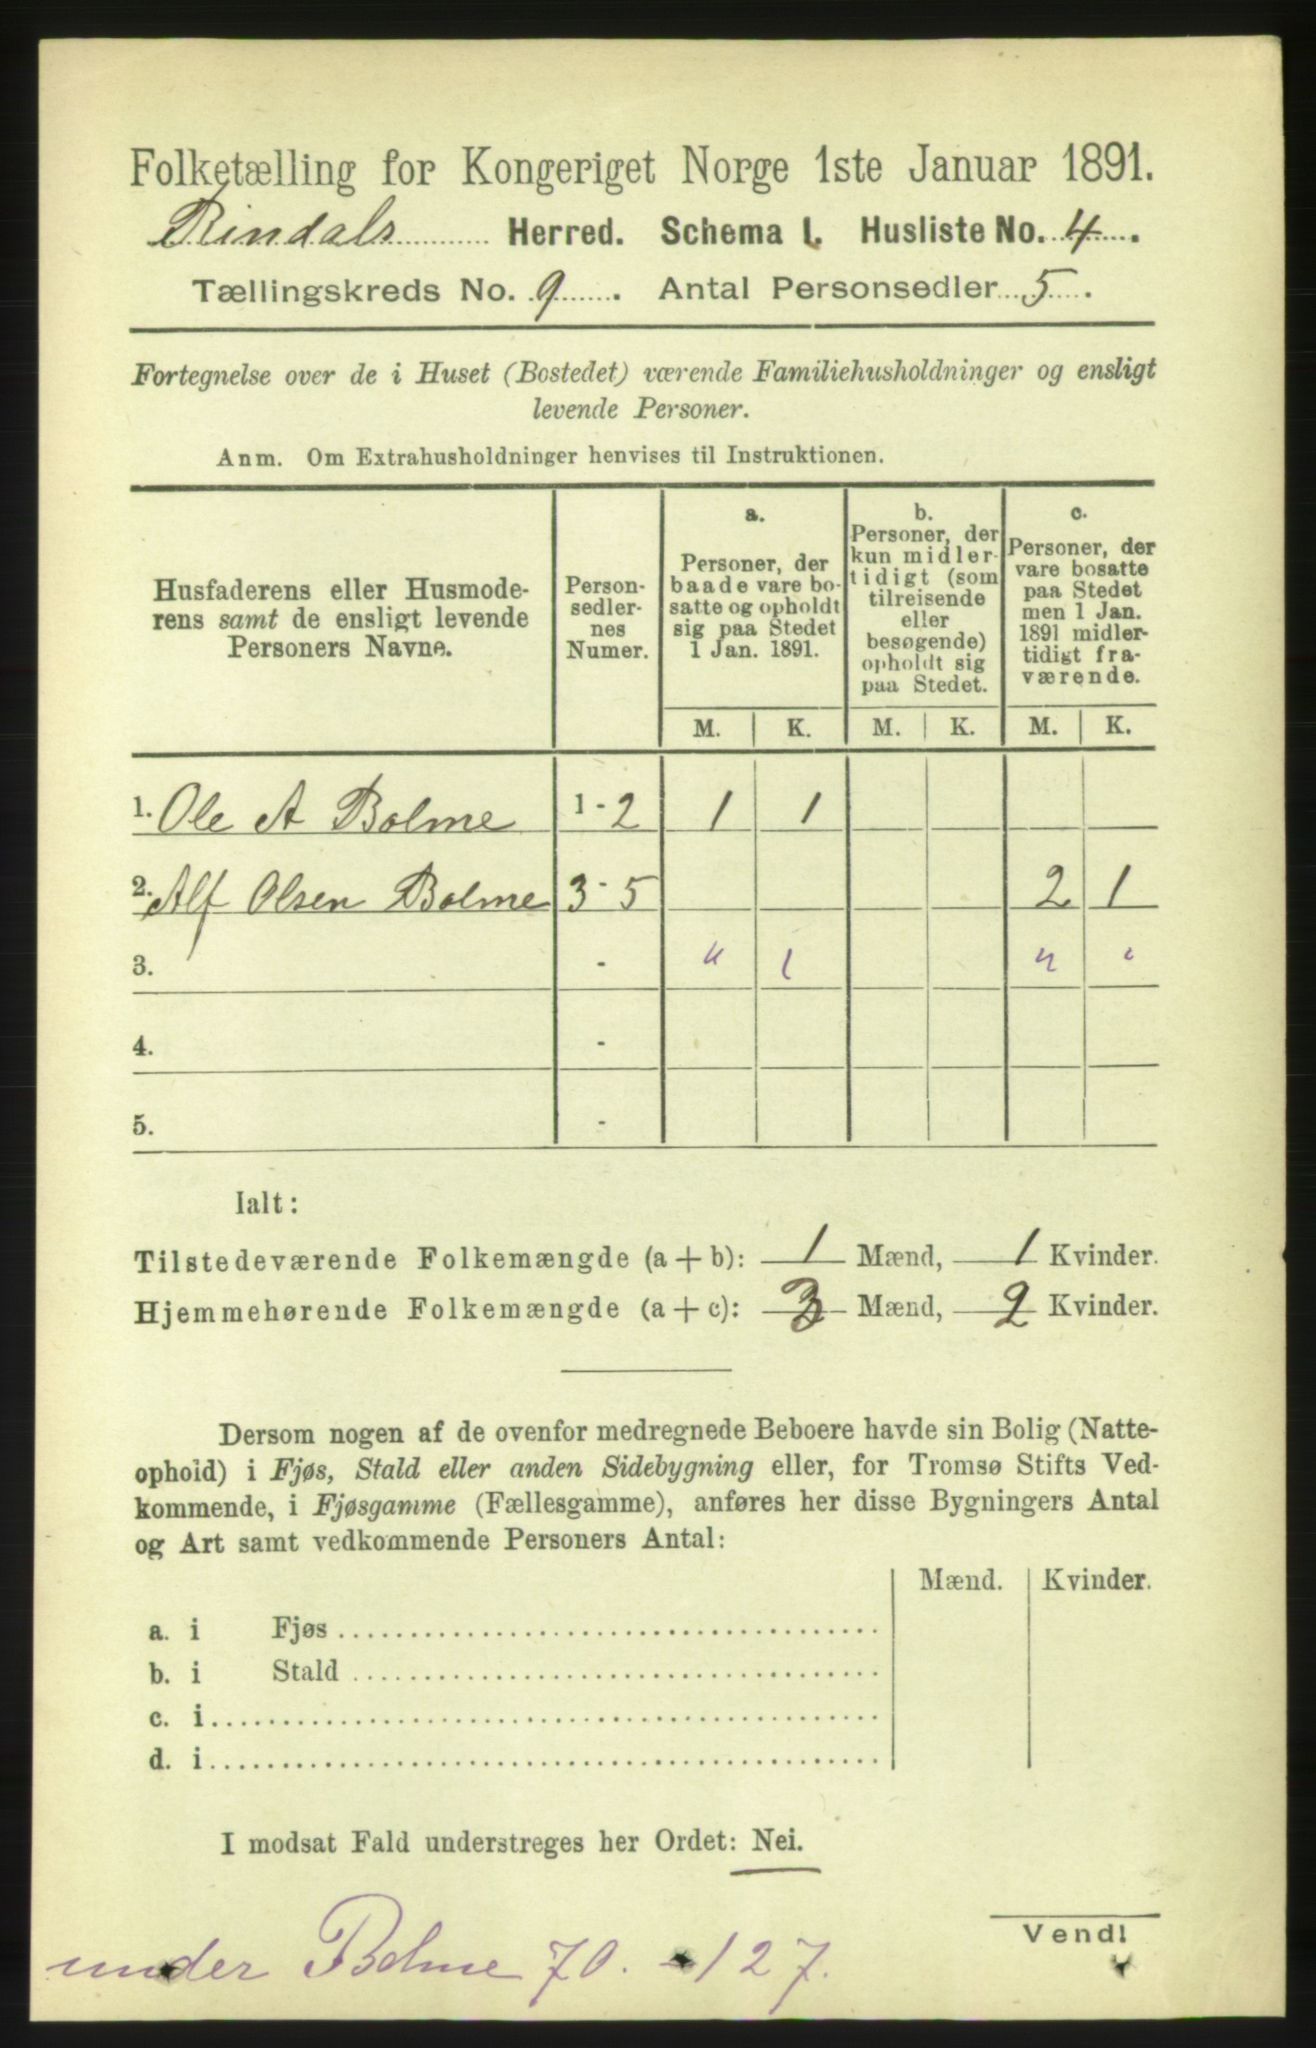 Folketælling for Kongeriget Norge 1ste Januar 1891.
Rindals Herred. Schema I. Husliste No. 4.
Tællingskreds No. 9. Antal Personsedler 5.
Fortegnelse over de i Huset (Bostedet) værende Familiehusholdninger og ensligt
levende Personer.
Anm. Om Extrahusholdninger henvises til Instruktionen.
Husfaderens eller Husmode-
rens samt de ensligt levende
Personers Navne.
Person-
sedler-
nes
Numer.
a.
Personer, der
baade vare bo-
satte og opholdt
sig paa Stedet
1 Jan. 1891.
b.
Personer, der
kun midler-
tidigt (som
tilreisende
eller
besøgende)
opholdt sig
paa Stedet.
c.
Personer, der
vare bosatte
paa Stedet
men 1 Jan.
1891 midler-
tidigt fra-
værende.
M. K. M. K. M. K.
1. Ole A Bolme 1-2 1 1
2. Alf Olsen Bolme 3-5 2 1
3. - " 1 " "
4. -
5. -
Ialt:
Tilstedeværende Folkemængde (a + b): 1 Mænd, 1 Kvinder.
Hjemmehørende Folkemængde (a + c): 3 Mænd, 2 Kvinder.
Dersom nogen af de ovenfor medregnede Beboere havde sin Bolig (Natte-
ophold) i Fjøs, Stald eller anden Sidebygning eller, for Tromsø Stifts Ved-
kommende, i Fjøsgamme (Fællesgamme), anføres her disse Bygningers Antal
og Art samt vedkommende Personers Antal:
Mænd. Kvinder.
a. i Fjøs
b. i Stald
c. i
d. i
I modsat Fald understreges her Ordet: Nei.
Vend!
under Bolme 70. - 127.